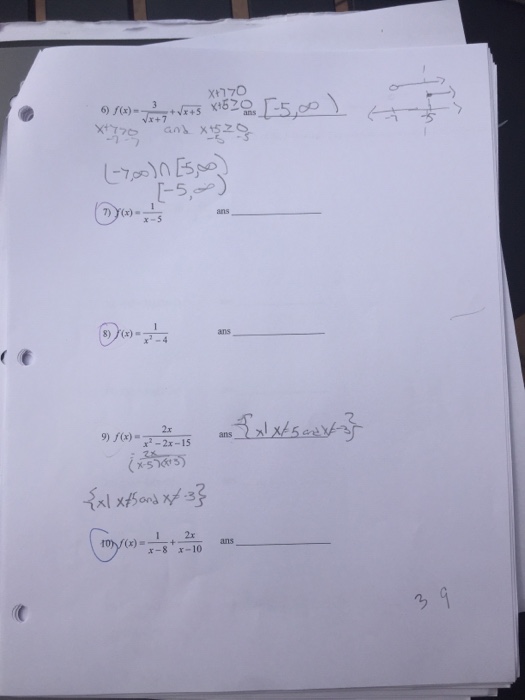 x+7>0
6) f(x) = 3/√x+7 + √x+5 x+5≥0 ans [-5,∞)
x+7>0 and x+5≥0
-7 -7 -5 -5
-7 -5
(-7,∞)∩[-5,∞)
[-5,∞)
7) f(x) = 1/x-5 ans
8) f(x) = 1/x²-4 ans
9) f(x) = 2x/x²-2x-15 ans {x| x≠5 and x≠-3}
= 2x/(x-5)(x+3)
{x| x≠5 and x≠-3}
10) f(x) = 1/x-8 + 2x/x-10 ans
39